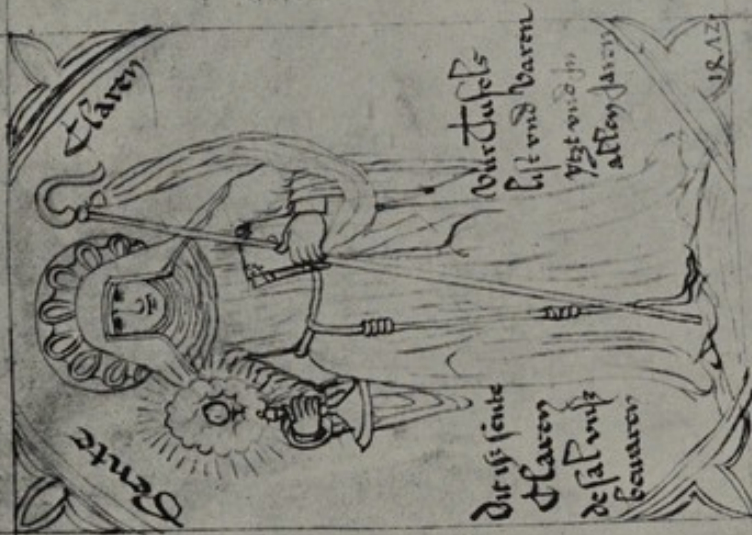 Sente Claren
Dit ist sente
Claren
de sal vnß
bewaren
Vur Tufels
list vnd varen
ytzt vnd jn
allen jaren